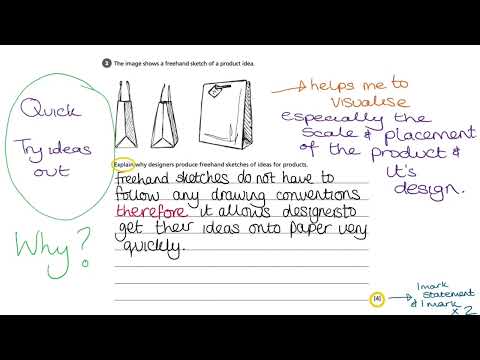 3 The image shows a freehand sketch of a product idea.
Quick
Try ideas
out
Why?
→ helps me to
visualise
especially the
scale & placement
of the product &
it's
design.
Explain why designers produce freehand sketches of ideas for products.
freehand sketches do not have to
follow any drawing conventions
therefore it allows designers to
get their ideas onto paper very
quickly.
[4]
→ 1 mark
statement
& 1 mark
x 2